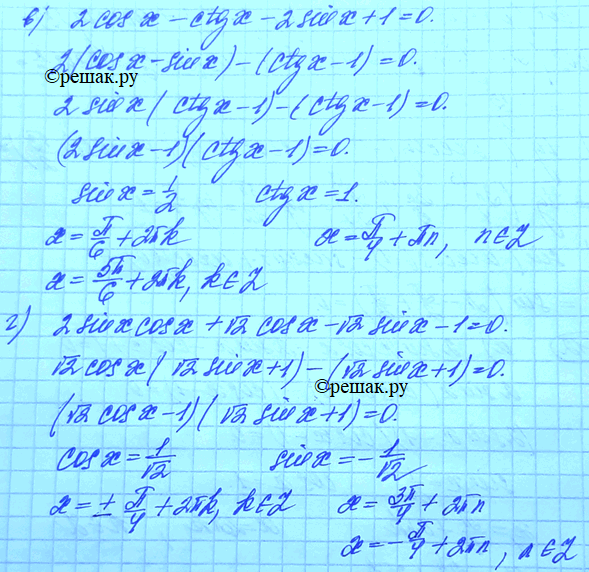 в) 2 cos x - ctg x - 2 sin x + 1 = 0.
2(cos x - sin x) - (ctg x - 1) = 0.
©решак.ру
2 sin x (ctg x - 1) - (ctg x - 1) = 0.
(2 sin x - 1)(ctg x - 1) = 0.
sin x = 1/2 ctg x = 1.
x = π/6 + 2πk x = π/4 + πn, n ∈ Z
x = 5π/6 + 2πk, k ∈ Z
г) 2 sin x cos x + √2 cos x - √2 sin x - 1 = 0.
√2 cos x (√2 sin x + 1) - (√2 sin x + 1) = 0.
©решак.ру
(√2 cos x - 1)(√2 sin x + 1) = 0.
cos x = 1/√2 sin x = - 1/√2
x = ± π/4 + 2πk, k ∈ Z x = 3π/4 + 2πn
x = - π/4 + 2πn, n ∈ Z